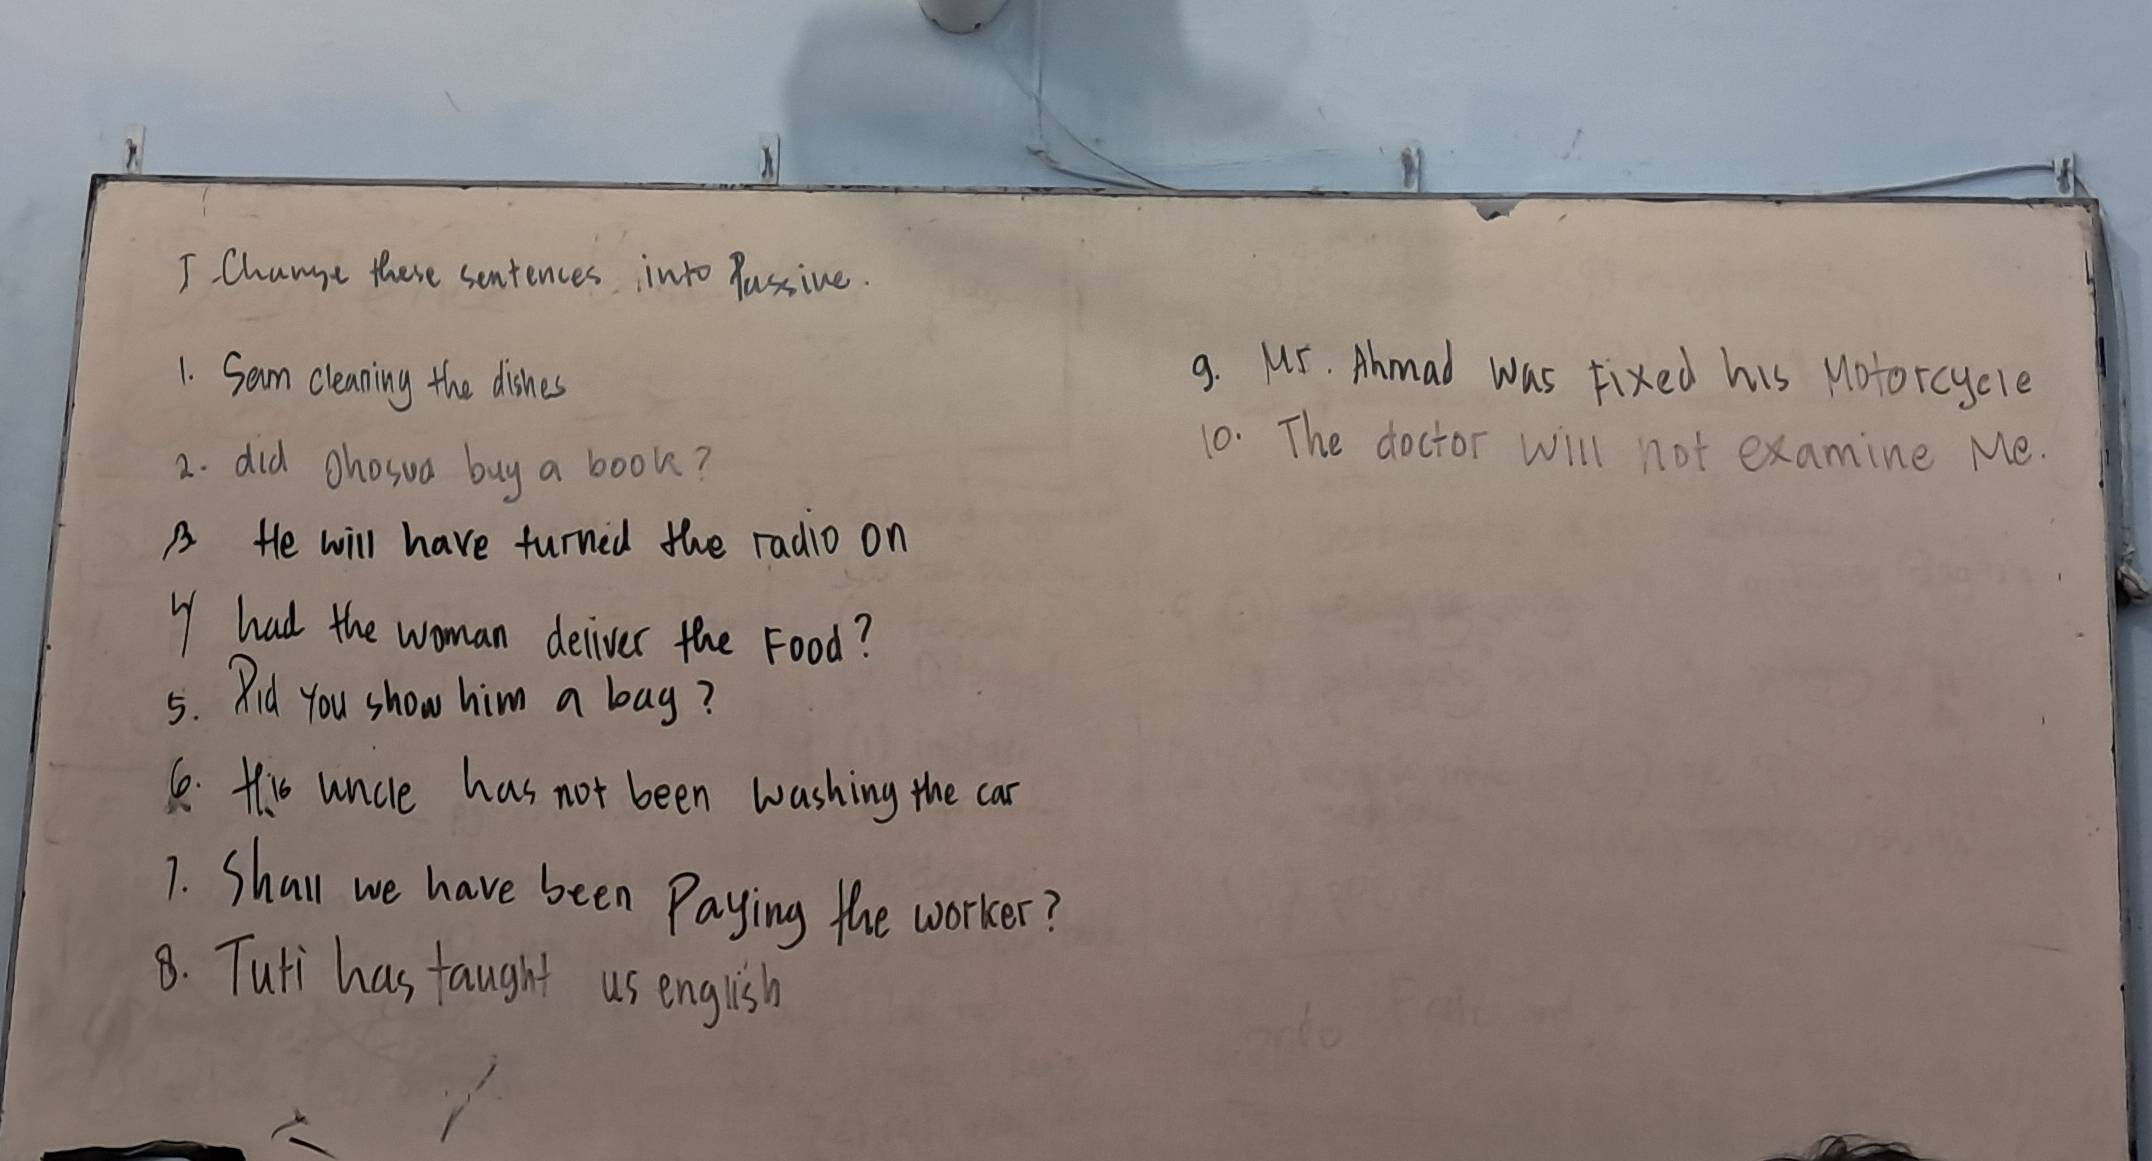 I Change these sentences into Passive.
1. Sam cleaning the dishes
2. did Jhosua buy a book?
3 He will have turned the radio on
4 had the woman deliver the Food?
5. Did you show him a bag?
6. His uncle has not been washing the car
7. Shall we have been Paying the worker?
8. Tuti has taught us english
9. Mr. Ahmad was Fixed his Motorcycle
10. The doctor will not examine Me.